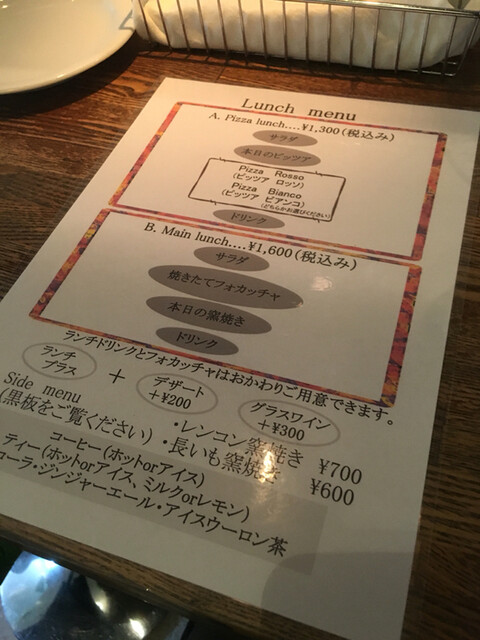 Lunch menu
A. Pizza lunch....¥1,300(税込み)
サラダ
本日のピッツア
Pizza Rosso
(ピッツア ロッソ)
Pizza Bianco
(ピッツア ビアンコ)
(どちらかお選びください)
ドリンク
B. Main lunch....¥1,600(税込み)
サラダ
焼きたてフォカッチャ
本日の窯焼き
ドリンク
ランチドリンクとフォカッチャはおかわりご用意できます。
ランチ
プラス
+
デザート
+¥200
グラスワイン
+¥300
Side menu
(黒板をご覧ください)
・レンコン窯焼き ¥700
・長いも窯焼き ¥600
コーヒー(ホットorアイス)
ティー(ホットorアイス、ミルクorレモン)
コーラ・ジンジャーエール・アイスウーロン茶